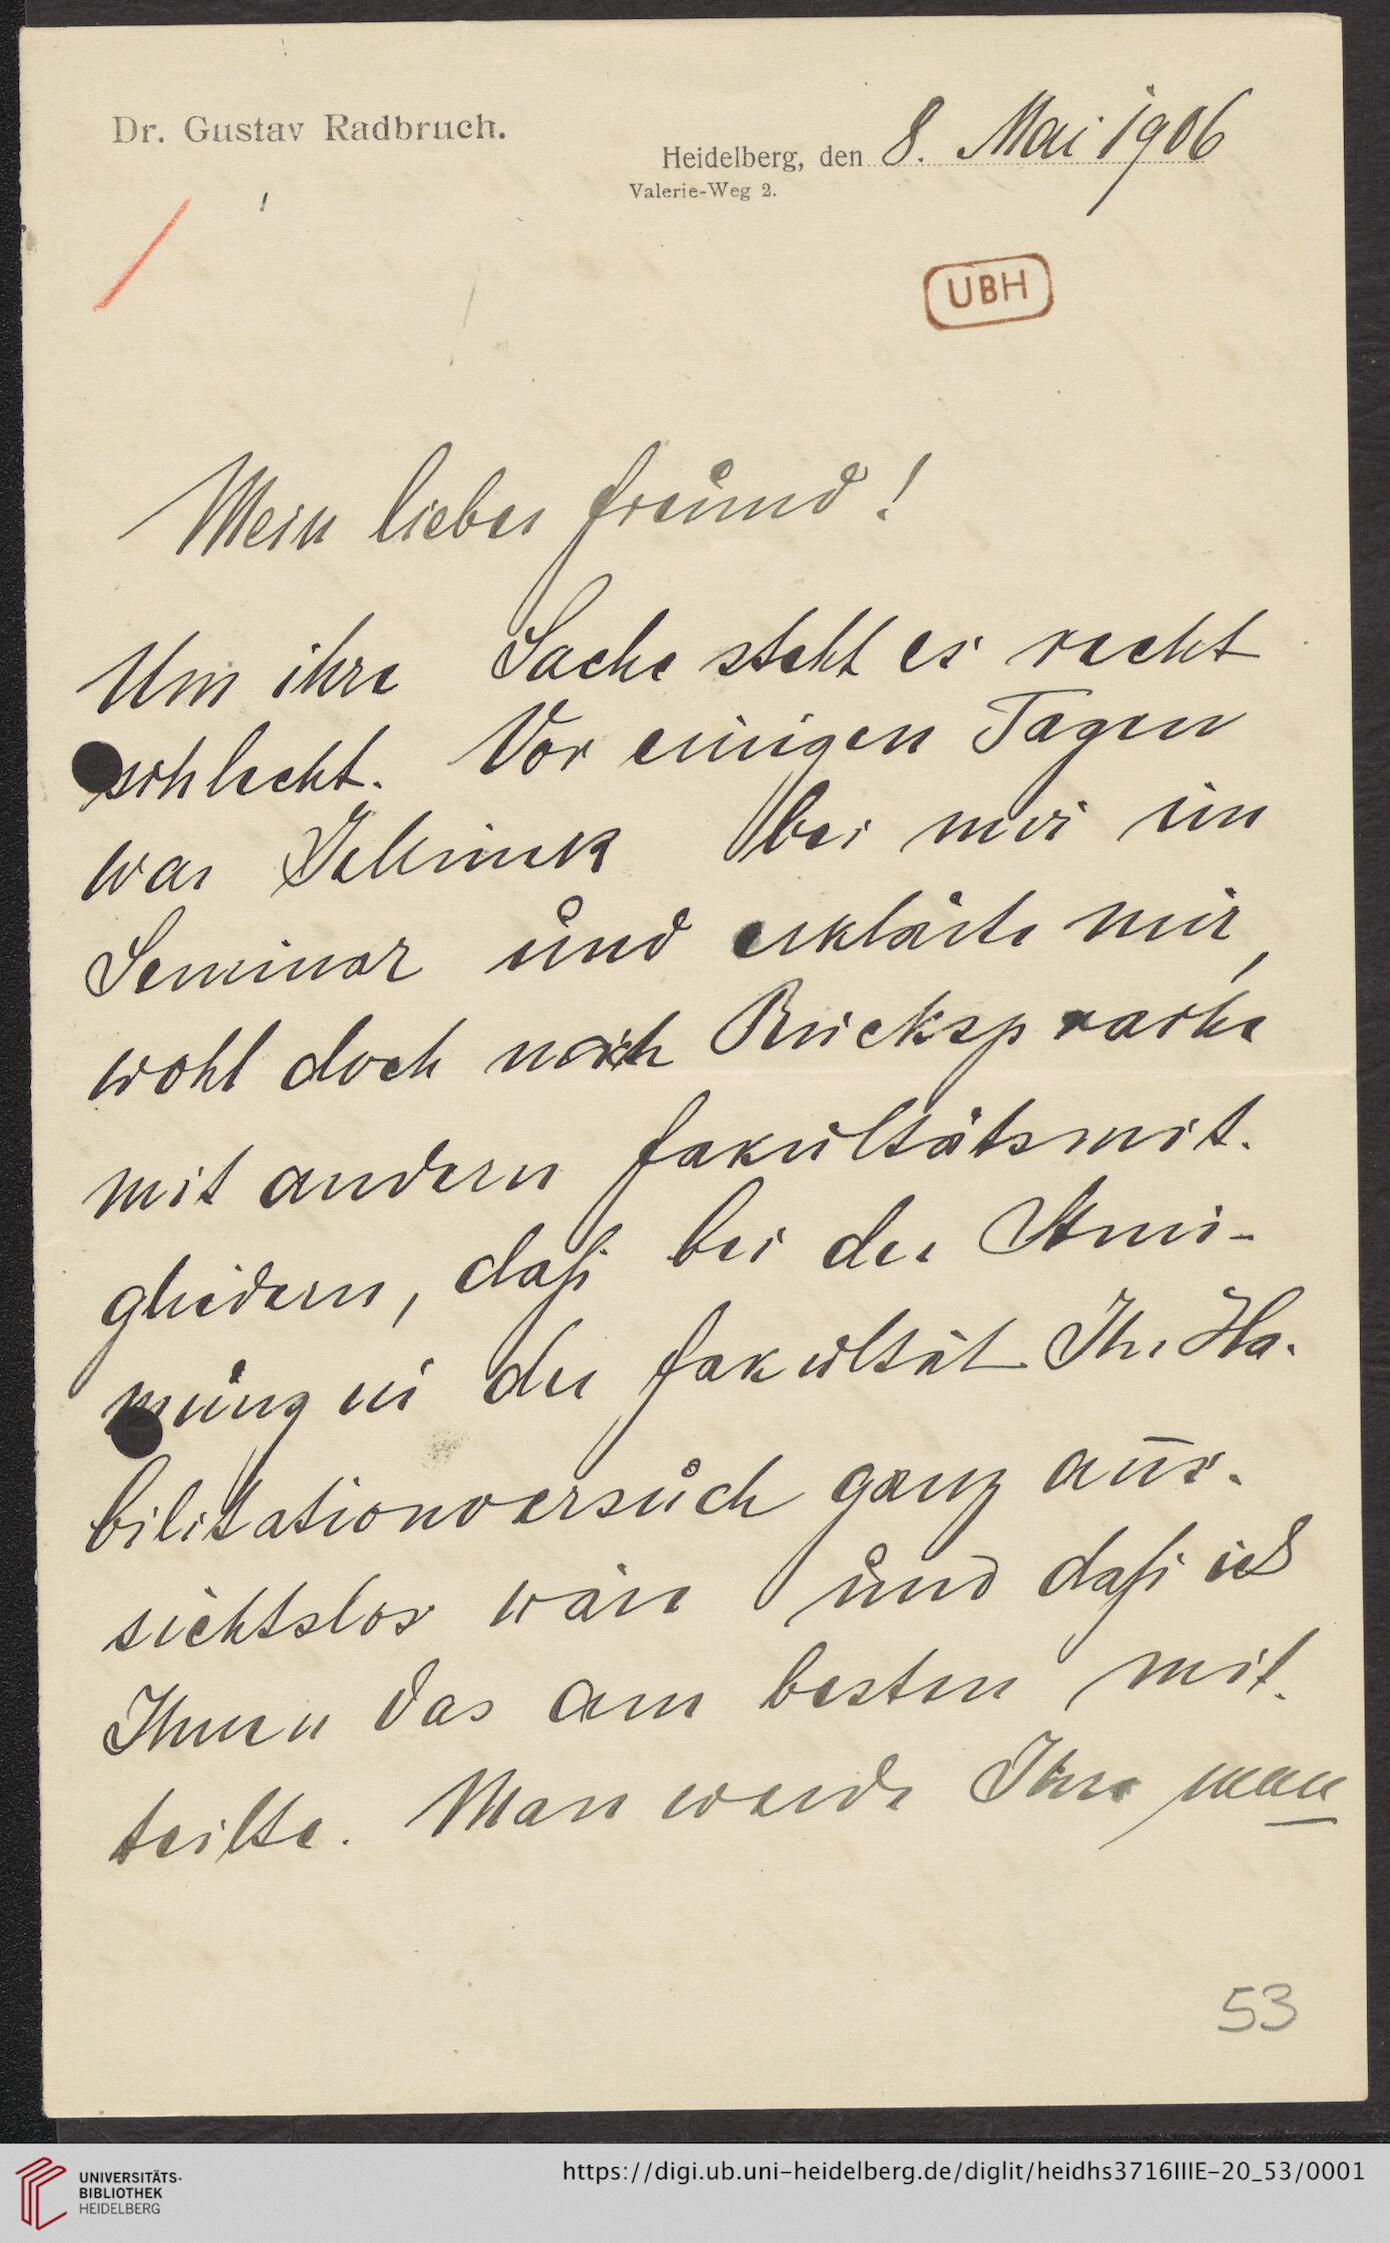 Dr. Gustav Radbruch.
Heidelberg, den 8. Mai 1906
Valerie-Weg 2.
UBH
Mein lieber Freund!
Um ihre Sache steht es recht
schlecht. Vor einigen Tagen
war Jellinek bei mir im
Seminar und erklärte mir,
wohl doch nach Rücksprache
mit andern Fakultätsmit-
gliedern, daß bei der Stim-
mung in der Fakultät Ihr Ha-
bilitationsversuch ganz aus-
sichtslos wäre und daß ich
Ihnen das am besten mit-
teilte. Man werde Ihre
53
UNIVERSITÄTS-
BIBLIOTHEK
HEIDELBERG
https://digi.ub.uni-heidelberg.de/diglit/heidhs3716IIIE-20_53/0001